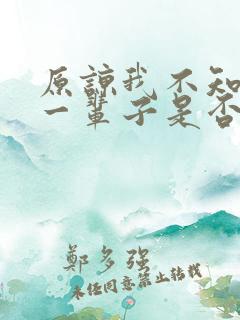 原諒我不知
一輩子是否
鄭多強
未任同意禁止转載